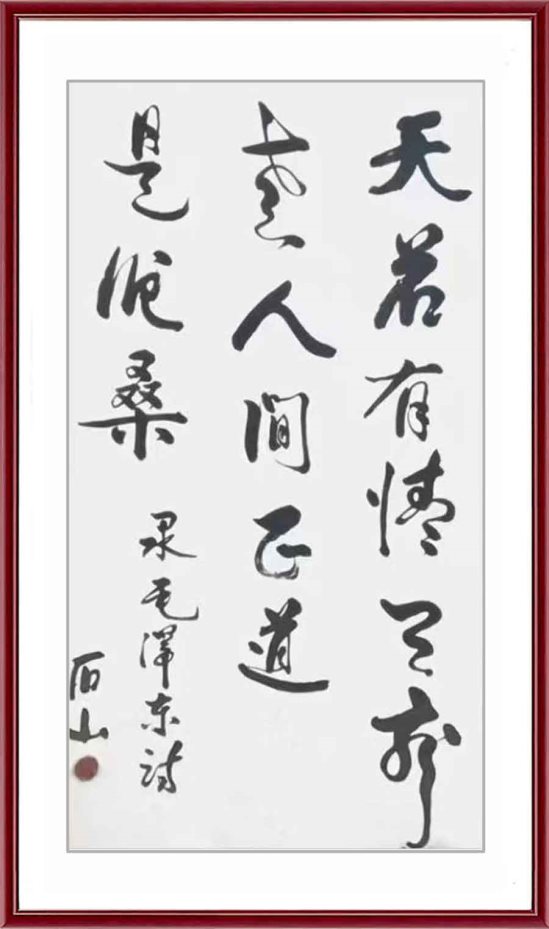 天若有情天亦
老人间正道
是沧桑
录毛泽东诗